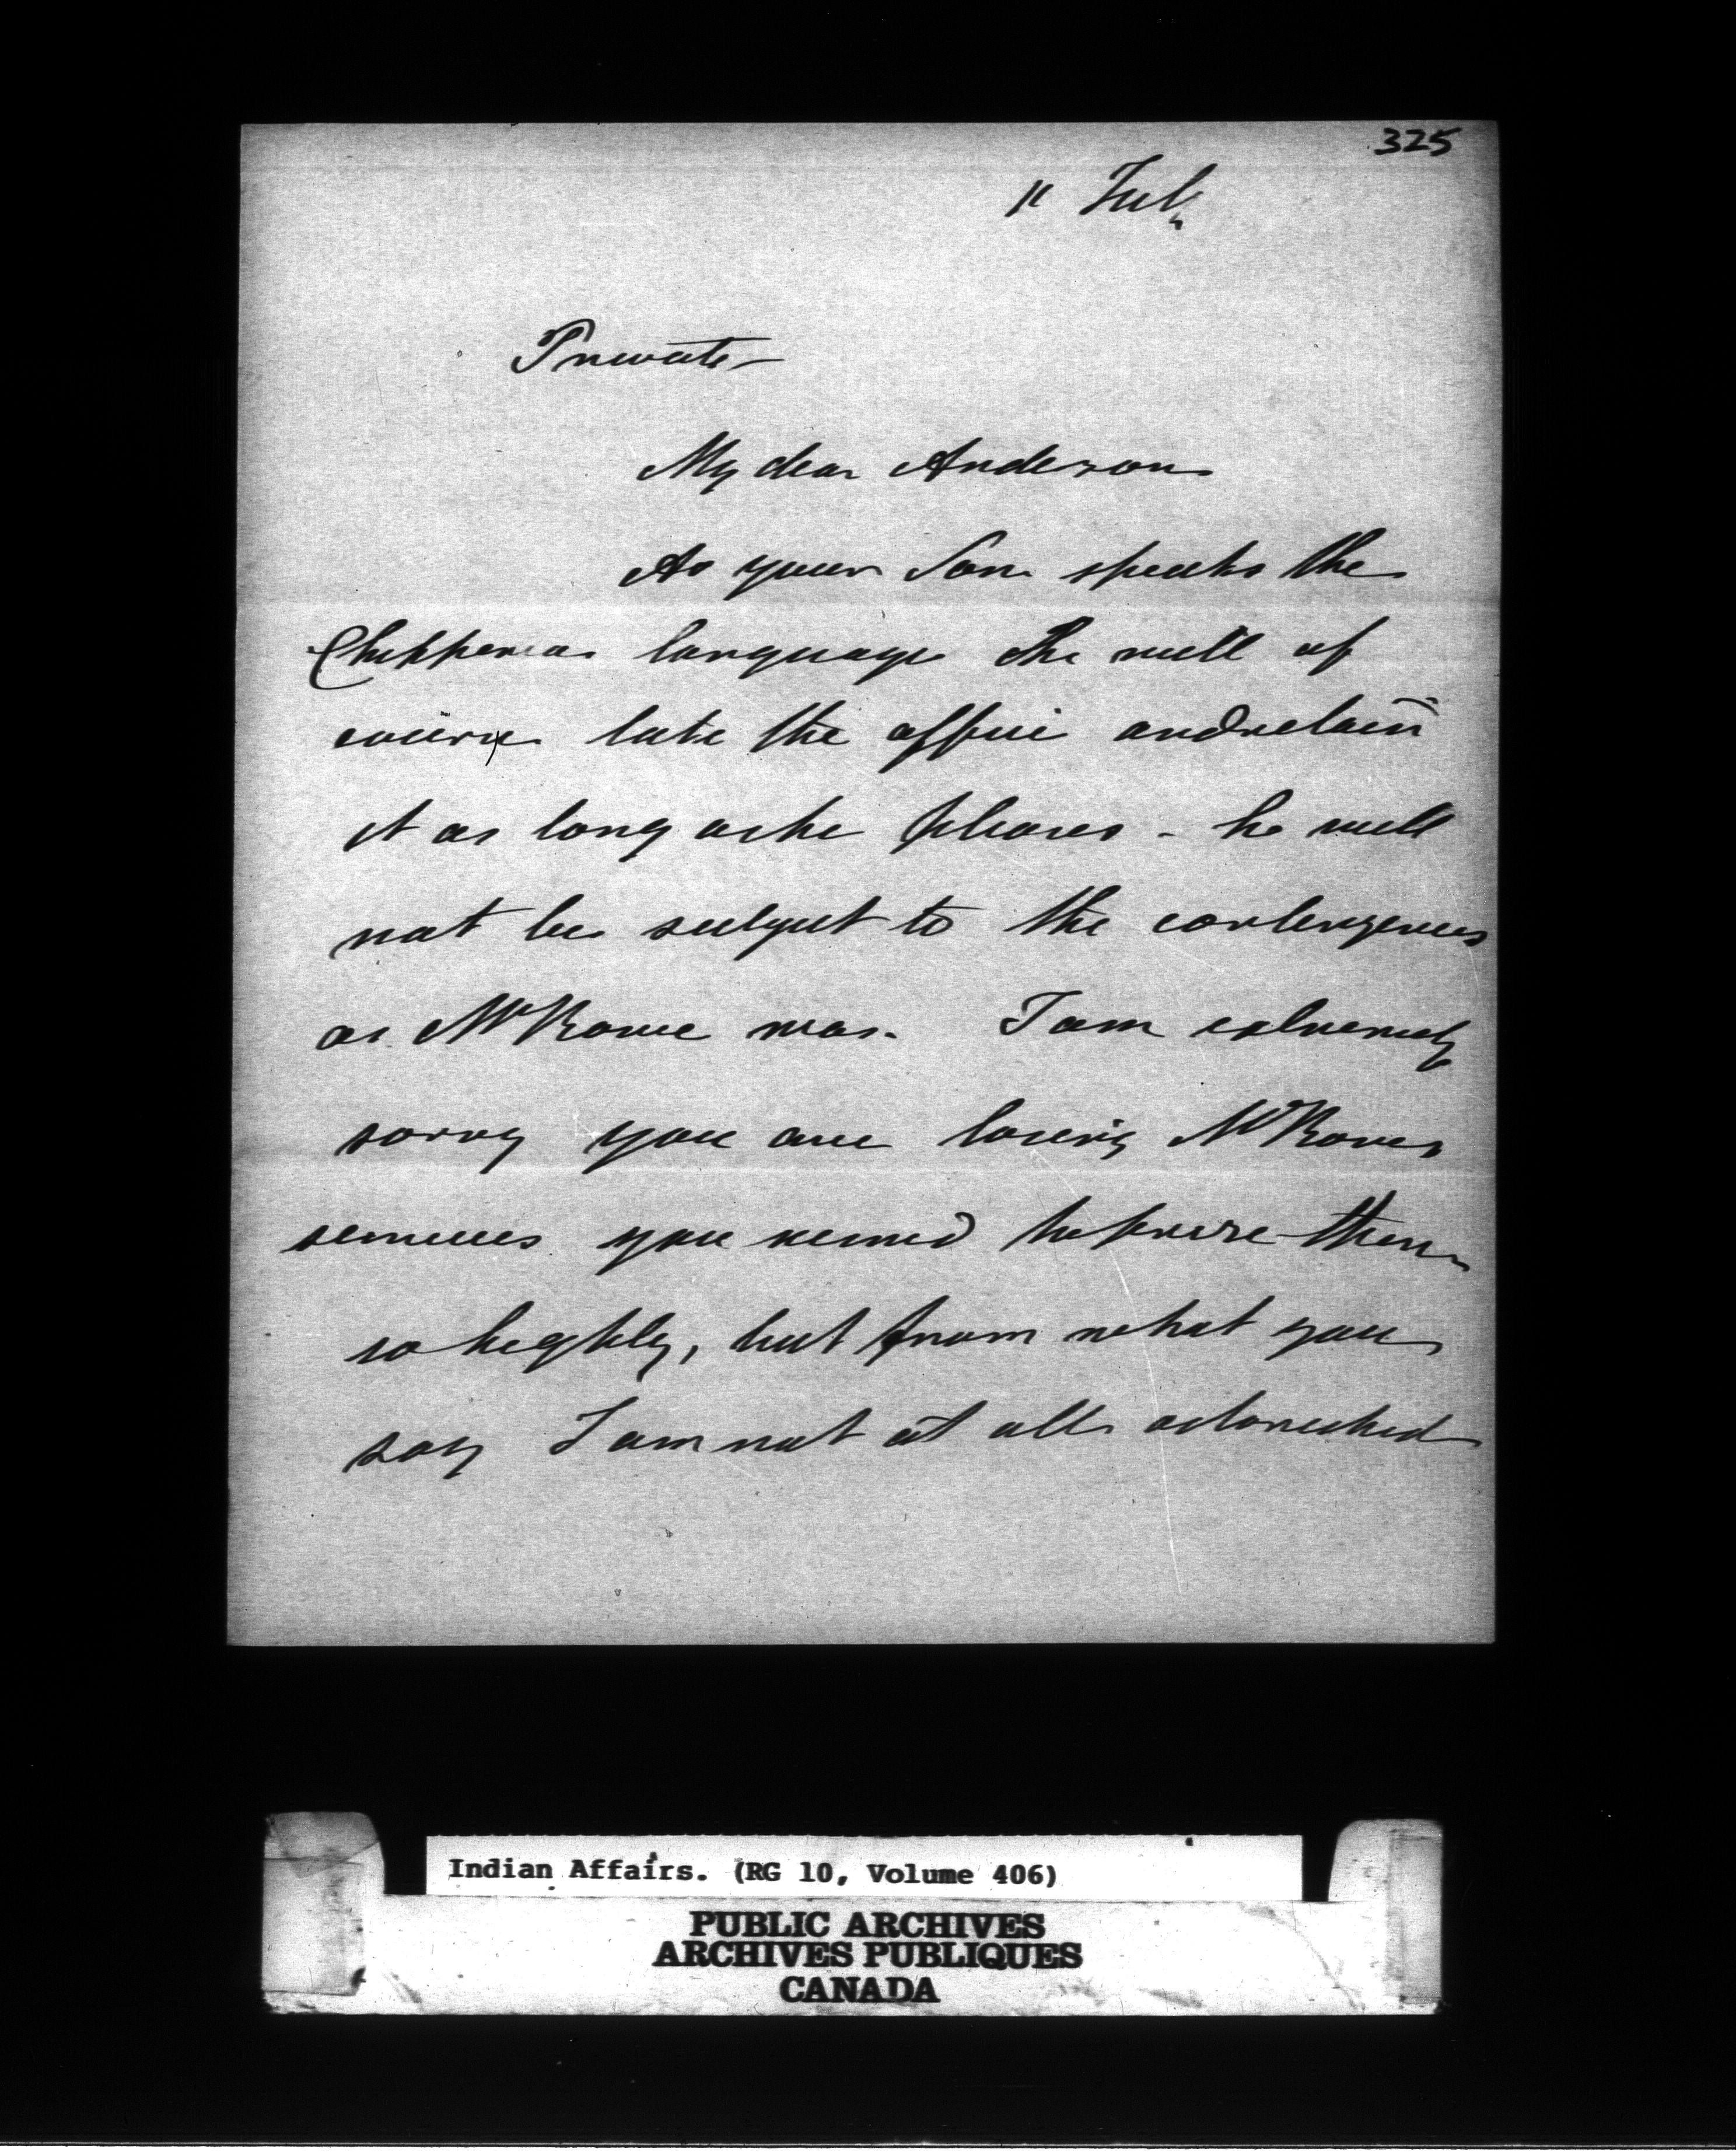 325
11 July
Private
My dear Anderson
As your Son speaks the
Chippewa language he will of
course take the office and retain
it as long as he pleases - he will
not be subject to the contingencies
as Mr Rowe was. I am extremely
sorry you are losing Mr Rowes
services you seemed to prize them
so highly, but from what you
say I am not at all astonished
Indian Affairs. (RG 10, Volume 406)
PUBLIC ARCHIVES
ARCHIVES PUBLIQUES
CANADA